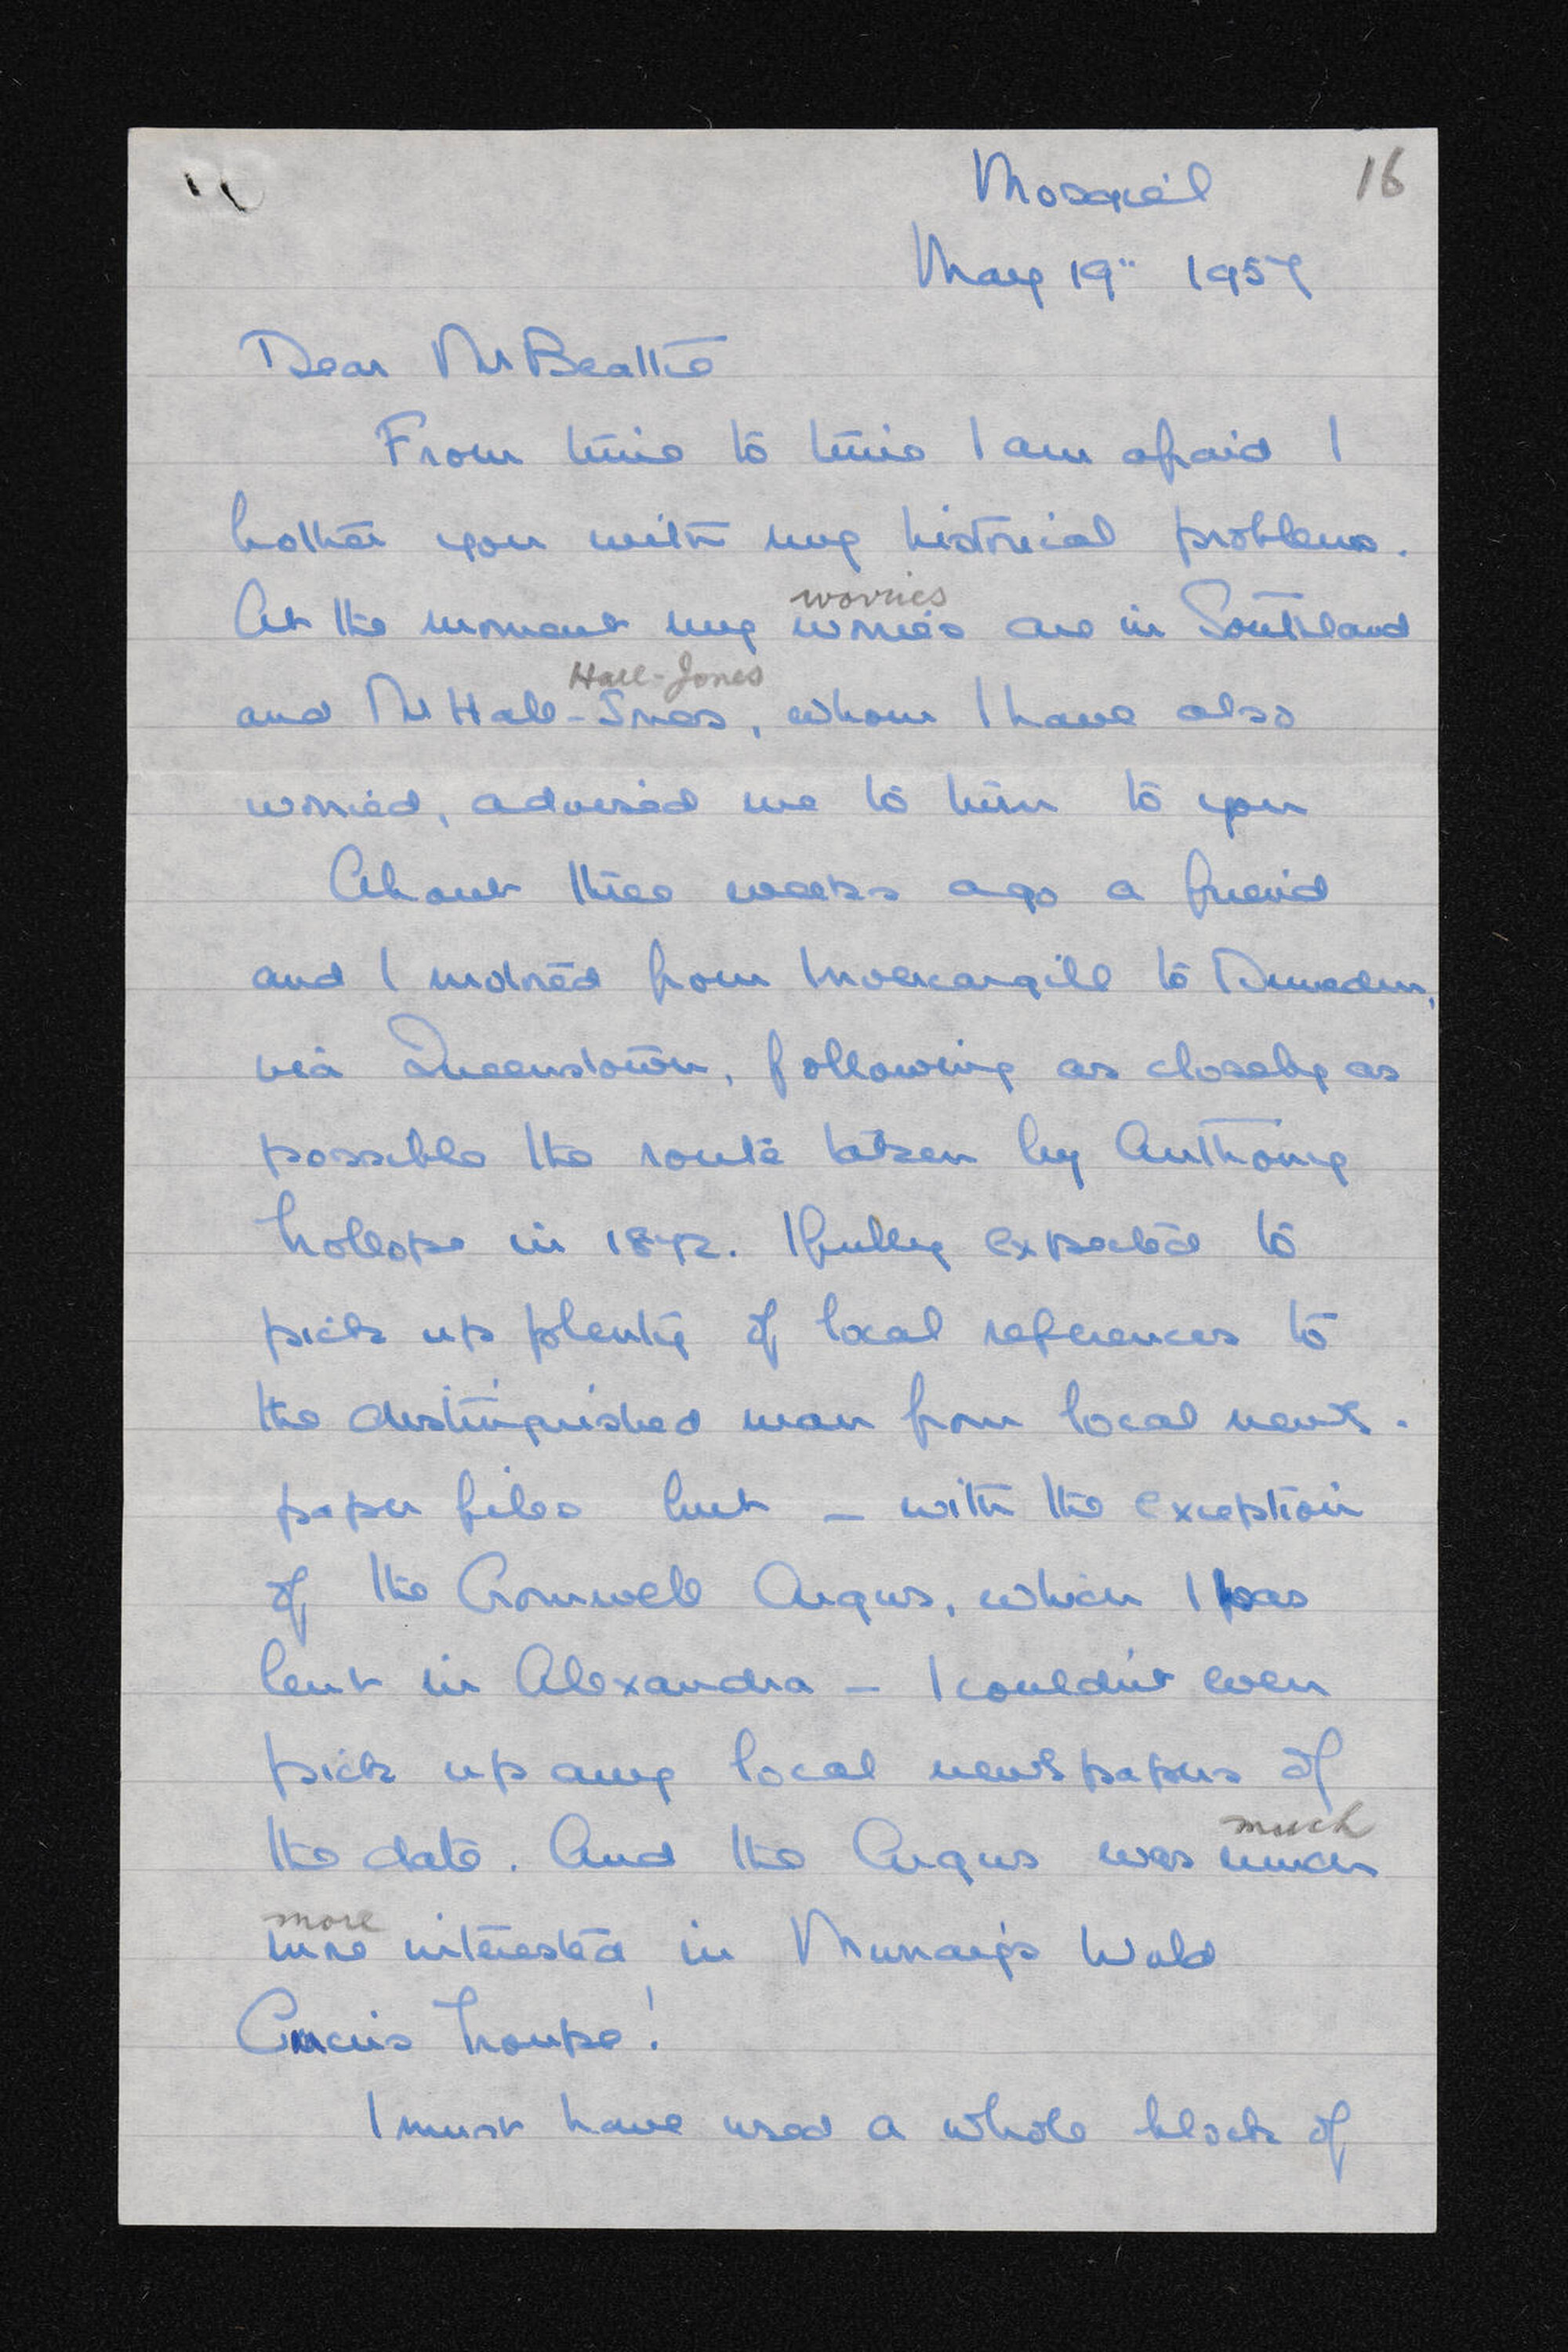 16
Mosgiel
May 19" 1957
Dear Mr Beattie
From time to time I am afraid I
bother you with my historical problems.
worries
At the moment my worries are in Southland
Hall-Jones
and Mr Hall-Jones, whom I have also
worried, advised me to turn to you
About three weeks ago a friend
and I motored from Invercargill to Dunedin,
via Queenstown, following as closely as
possible the route taken by Anthony
Trollope in 1872. I fully expected to
pick up plenty of local references to
the distinguished man from local news-
paper files but – with the exception
of the Cromwell Argus, which I was
lent in Alexandra – I couldn't even
pick up any local newspapers of
much
the date. And the Argus was much
more
more interested in Murray's
Circus Troupe!
I must have used a whole block of